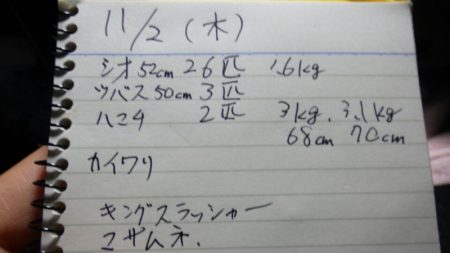 11/2 (木)
シオ 52cm 26匹 1.6kg
ツバス 50cm 3匹
ハマチ 2匹 3kg、3.1kg
68cm 70cm
カイワリ
キングスラッシャー
マサムネ.